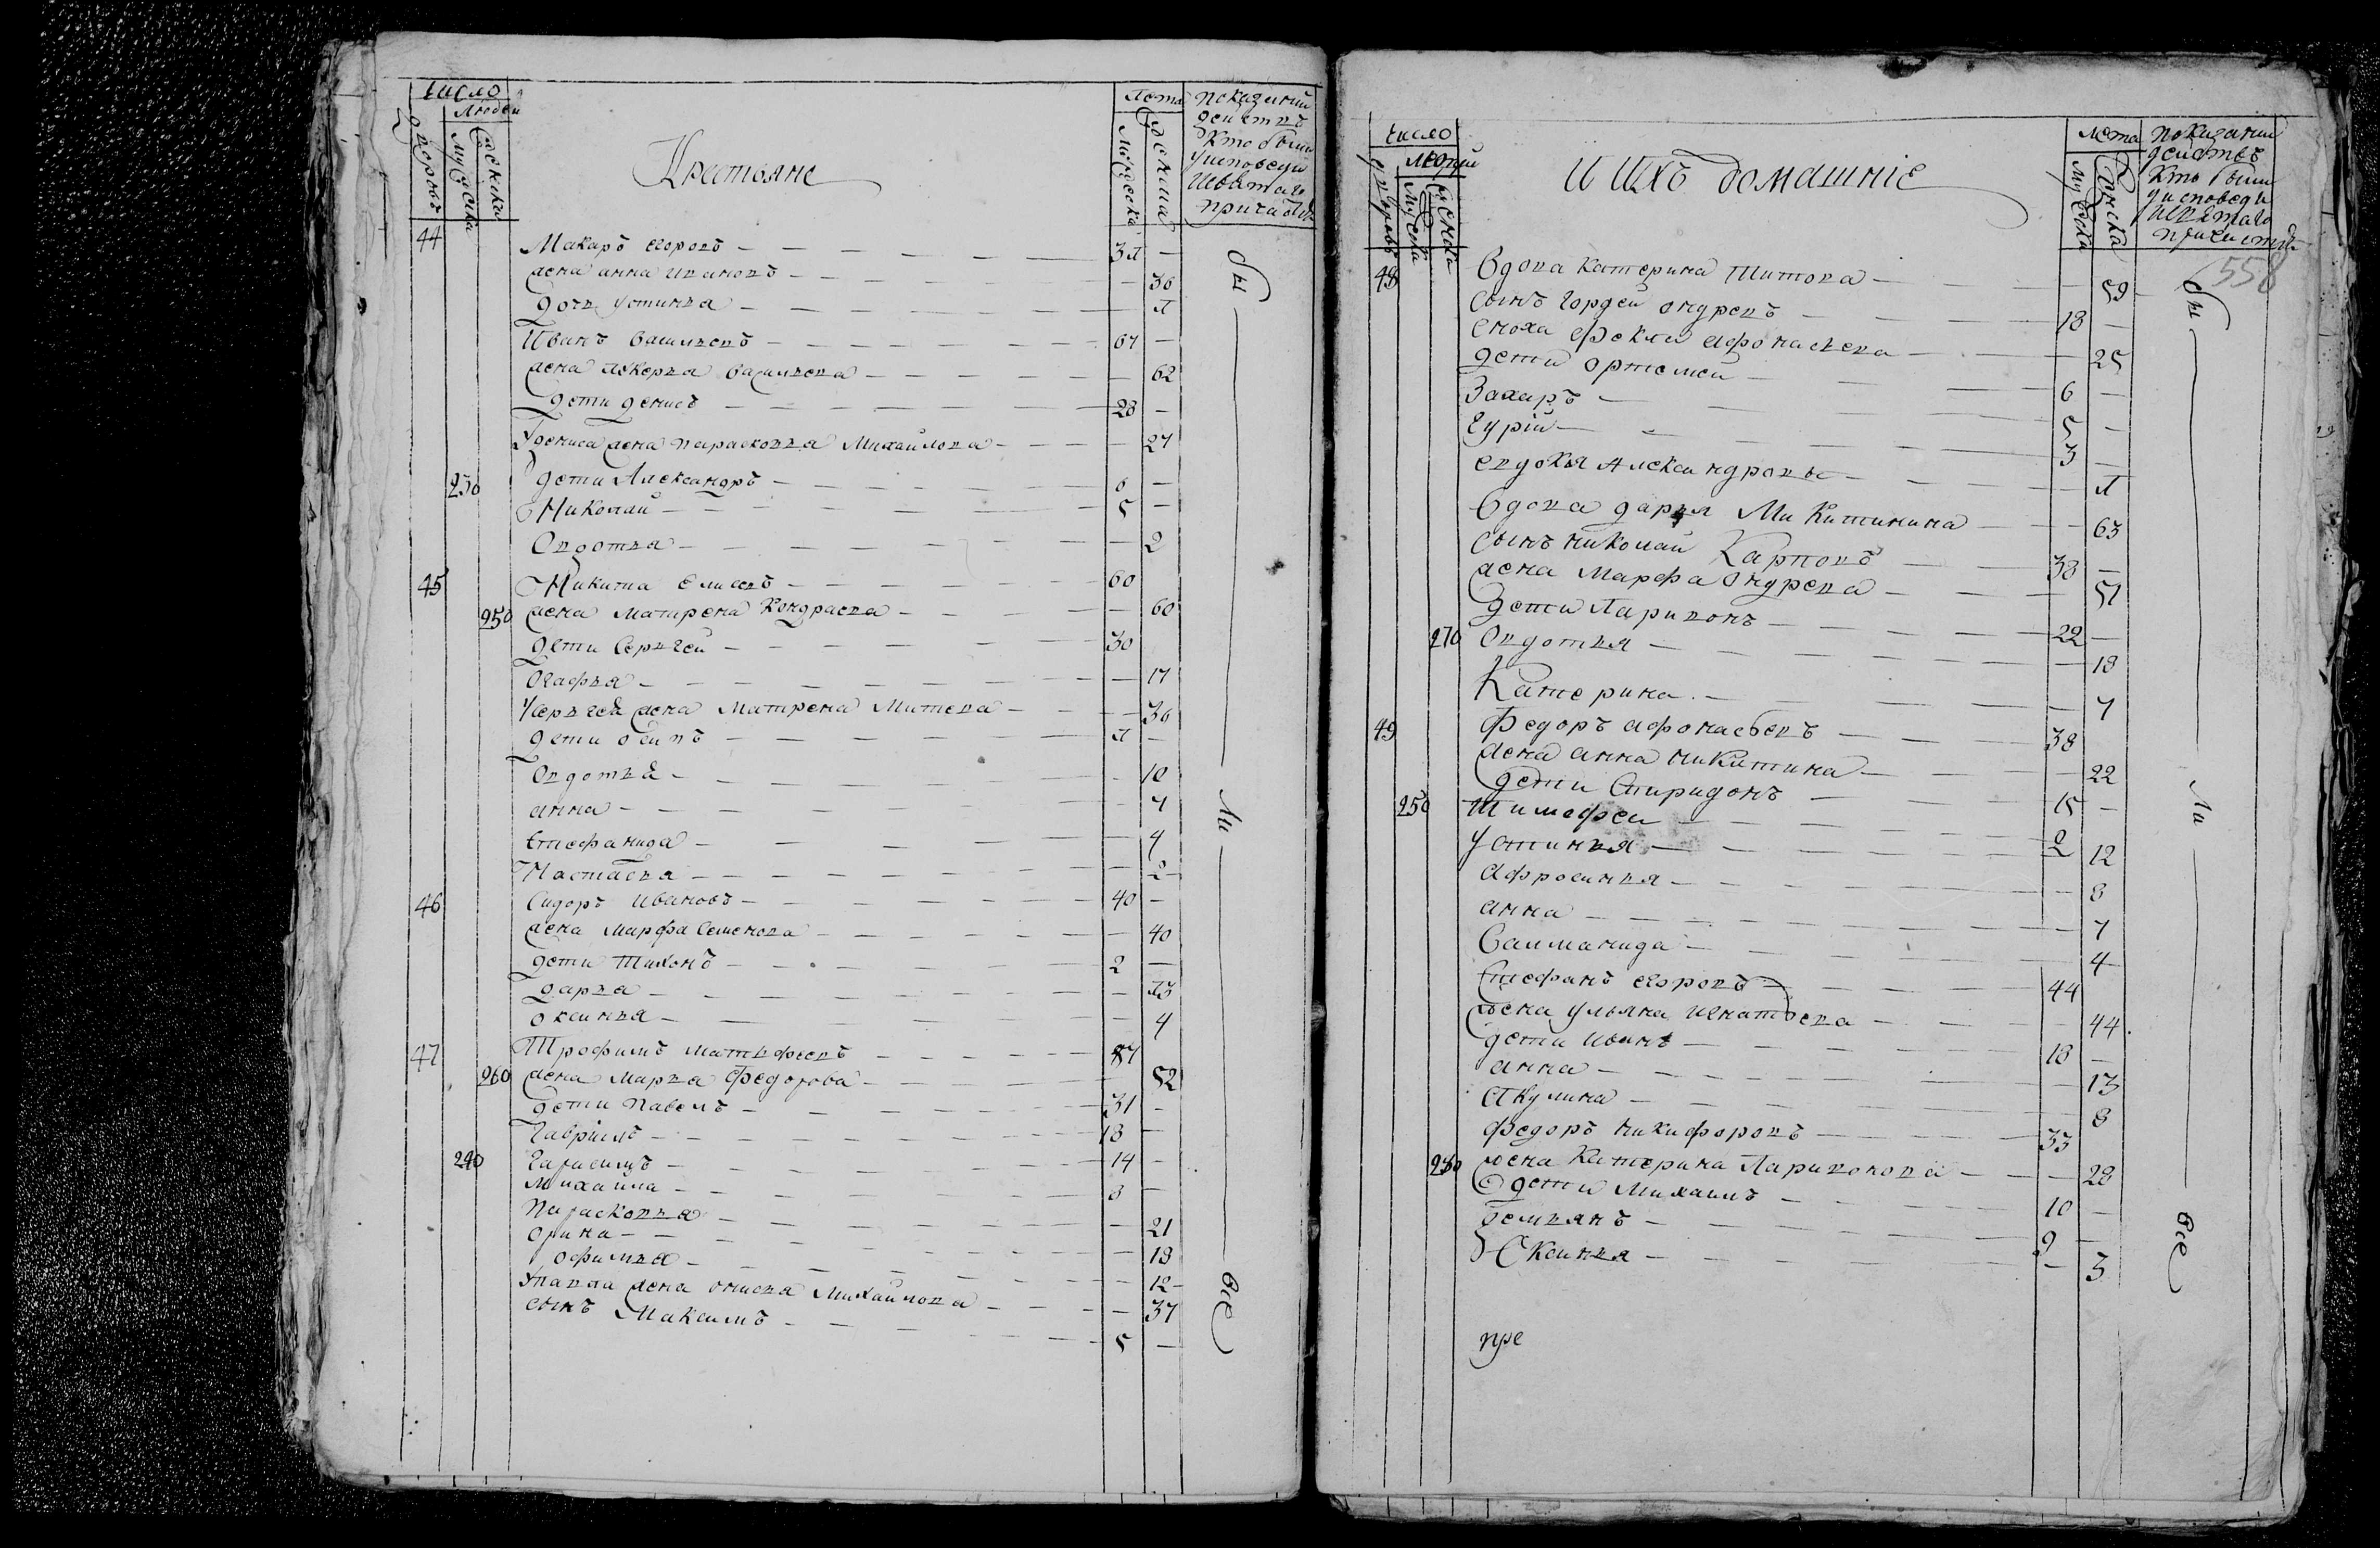 Число
Людей
дворовъ
мужеска
женска
Крестьяне
Лета
мужеска
женска
показании
действъ
кто были
у исповеди
и святаго
причастия
44 Макаръ егоровъ — 31 —
жена анна иванова — 36
дочь устинья — 1
Иванъ василиевъ — 67 —
жена лукерья василиева — 62
дети денисъ — 28 —
у дениса жена парасковья Михаилова — 27
230 дети Александръ — 6 —
Николаи — 5 —
Овдотья — 2
45 Никита елисеевъ — 60
250 жена матрена кондрасева — 60
дети Сергеи — 30
Огафья — 17
у сергея жена матрена Митева — 36
дети осипъ — 1 —
Овдотья — 10
анна — 7
стефанида — 4
Настасья — 2
46 Сидоръ ивановъ — 40 —
жена марфа семенова — 40
дети тихонъ — 2 —
дарья — 13
оксинья — 4
47 Трофимъ матвеевъ — 57
260 жена марья федорова — 52
дети павелъ — 31 —
гаврилъ — 18 —
240 гарасимъ — 14 —
михаила — 8 —
парасковья — 21
орина — 18
офимья — 12
у павла жена онисья михаилова — 37
сынъ максимъ — 5 —
бы
ли
все
Число
Людей
дворовъ
мужеска
женска
и ихъ домашние
лета
мужеска
женска
показании
действъ
кто были
у исповеди
и святаго
причастия
558
48 вдова катерина титова — 59
сынъ гордеи ондреевъ — 18 —
сноха фекла афонасьева — 25
дети ортемеи — 6 —
Захаръ — 5 —
гурии — 3 —
евдокья александрова — 1
вдова дарья микитинина — 63
сынъ николаи карповъ — 38 —
жена марфа ондреева — 51
дети ларивонъ — 22 —
270 Овдотья — 18
катерина — 7
49 федоръ афонасьевъ — 38
жена анна никитина — 22
дети спиридонъ — 15 —
250 тимофеи — 2
устинья — 12
афросинья — 8
анна — 7
салманида — 4
стефанъ егоровъ — 44
жена ульяна игнатьева — 44
дети иванъ — 18 —
анна — 13
акулина — 8
федоръ никифоровъ — 33
280 жена катерина ларивонова — 28
дети михаилъ — 10 —
демьянъ — 9 —
Оксинья — 3
бы
ли
все
пре